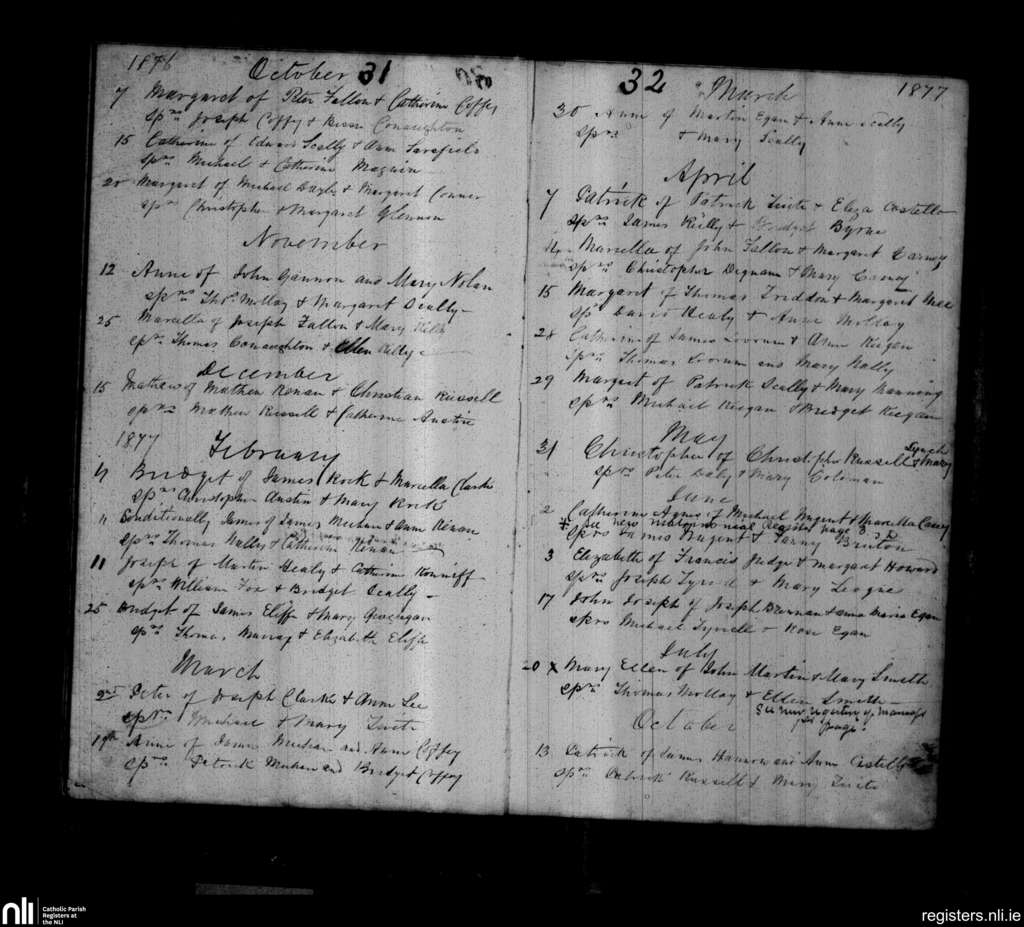 1876
October 31
7 Margaret of Peter Fallon & Catherine Coffey
Sprs Joseph Coffey & Conaughton
15 Catherine of Edward Scally & Ann
Sprs Michael & Catherine
Margaret of Michael & Margaret Connor
Sprs Christopher & Margaret Glennon
November
12 Anne of John Gannon and Mary Nolan
sprs Thos Molloy & Margaret Scally
25 Marcella of Joseph Fallon & Mary
sprs Thomas Conaughton & Ellen
December
15 Mathew of Mathew Ronan & Christian Russell
sprs Mathew Russell & Catherine Austin
1877
February
Bridget of James Rock & Marcella Clarke
sprs Christopher Austin & Mary Rock
11 Conditionally James of James Meehan & Anne Ronan
sprs Thomas & Catherine Ronan
11 Joseph of Martin Healy & Catherine
sprs William Fox & Bridget Scally
25 Bridget of James Eliffe & Mary Geoghgan
sprs Thomas Murray & Elizabeth Eliffe
March
2nd Peter of Joseph Clarke & Anne Lee
sprs Michael & Mary Tuite
19th Anne of James Meehan and Anne Coffey
sprs Patrick Meehan and Bridget Coffey
32 March 1877
30 Anne of Martin Egan & Anne Scally
sprs & Mary Scally
April
7 Patrick of Patrick Tuite & Eliza Costello
sprs James Reilly & Bridget Byrne
Marcella of John Fallon & Margaret Carney
sprs Christopher Dignam & Mary Carney
15 Margaret of Thomas & Margaret Mee
sprs David Healy & Anne Molloy
28 Catherine of James & Anne Keegan
sprs Thomas and Mary Nally
29 Margret of Patrick Scally & Mary Manning
sprs Michael Keegan & Bridget Keegan
May
31 Christopher of Christopher Russell & Mary Lynch
sprs Peter Daly & Mary Coleman
June
2 Catherine Agnes of Michael Nugent & Marcella Casey
* See new matrimonial Register page
sprs James Nugent & Fanny Brinton
3 Elizabeth of Francis Judge & Margaret Howard
sprs Joseph Tyrrell & Mary Leogue
17 John Joseph of Joseph Brennan & Anna Maria Egan
sprs Michael Tyrrell & Rose Egan
July
20 x Mary Ellen of John Martin & Mary Smith
sprs Thomas Molloy & Ellen Smith
See new register of marriages
page
October
13 Patrick of James Hannon and Anne Costello
sprs Patrick Russell & Mary Tuite
nli
Catholic Parish
Registers at
the NLI
registers.nli.ie